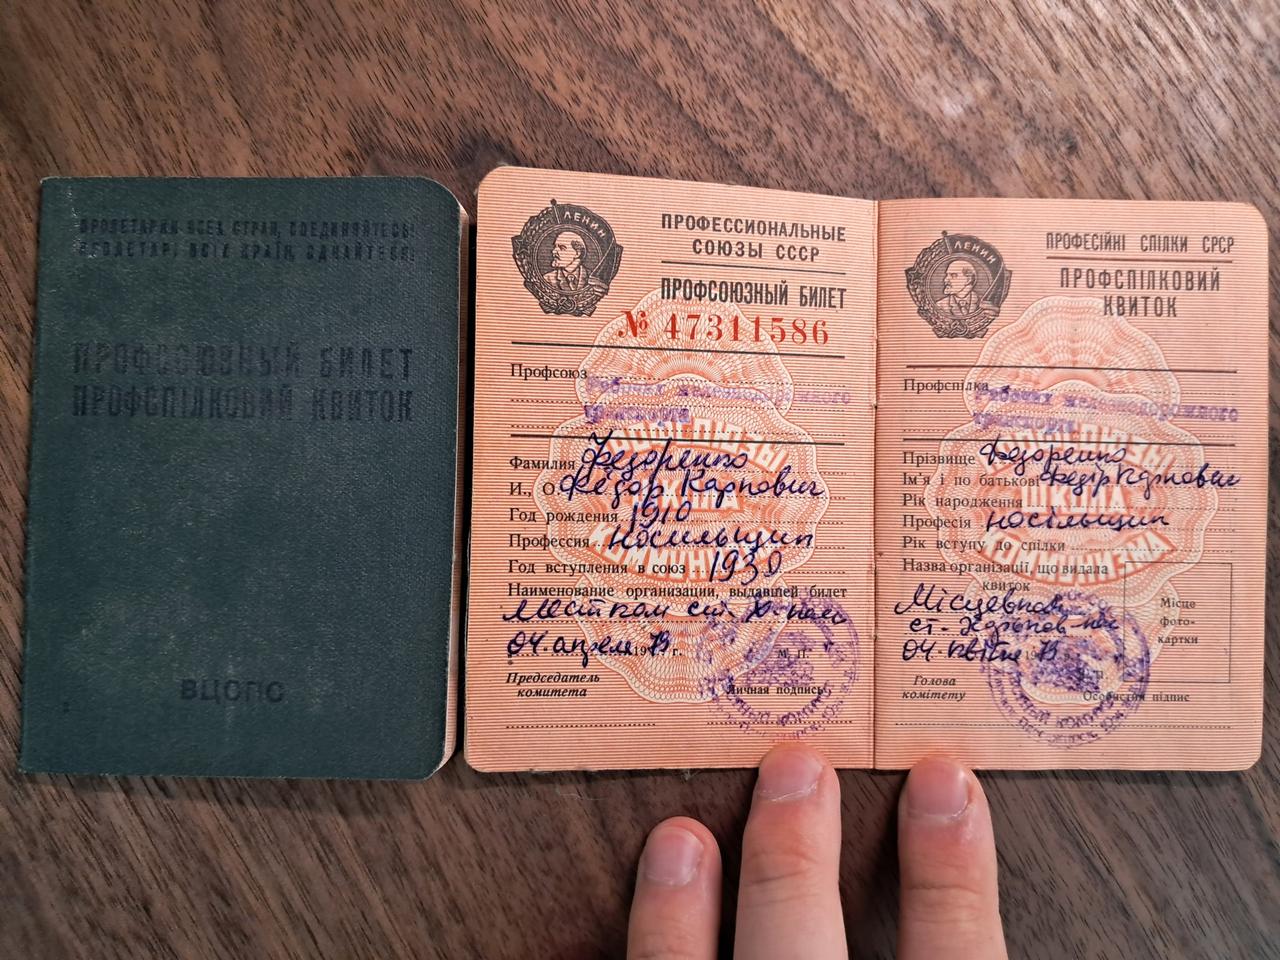 ПРОЛЕТАРИИ ВСЕХ СТРАН, СОЕДИНЯЙТЕСЬ!
ПРОЛЕТАРІ ВСІХ КРАЇН, ЄДНАЙТЕСЯ!
ПРОФСОЮЗНЫЙ БИЛЕТ
ПРОФСПІЛКОВИЙ КВИТОК
ВЦСПС
ЛЕНИН
ПРОФЕССИОНАЛЬНЫЕ
СОЮЗЫ СССР
ПРОФСОЮЗНЫЙ БИЛЕТ
№ 47311586
Профсоюз Рабочих железнодорожного
транспорта
ПРОФСОЮЗЫ
ШКОЛА
КОММУНИЗМА
Фамилия Федоренко
И., О. Федор Карпович
Год рождения 1910
Профессия Носильщик
Год вступления в союз 1930
Наименование организации, выдавшей билет
Местком ст. Х-пас
04 апреля 1973 г.
М. П.
Председатель
комитета
Личная подпись
ЛЕНИН
ПРОФЕСІЙНІ СПІЛКИ СРСР
ПРОФСПІЛКОВИЙ
КВИТОК
Профспілка Рабочих железнодорожного
транспорта
ПРОФСПІЛКИ
ШКОЛА
КОМУНІЗМУ
Прізвище Федоренко
Ім'я і по батькові Федір Карпович
Рік народження
Професія носільщик
Рік вступу до спілки
Назва організації, що видала
квиток
Місцевком
ст. Харьков-пас
04 квітня 1973
Місце
фото-
картки
Голова
комітету
Особистий підпис